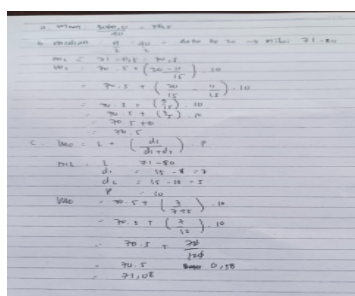 a. mean :
b. median : n/2 = 40/2 = data ke 20 → nilai 71-80
71-0,5 = 70,5
= 70.5 + (20 - 11 / 15) . 10
= 70.5 + (20/15 - 11/15) . 10
= 70.5 + (9/15) . 10
= 70.5 + . 10
= 70.5 + 6
= 76.5
c. MO = L + (d1 / d1+d2) . P
L 71-80
d1 = 15 - 8 = 7
d2 = 15 - 10 = 5
P = 10
MO = 70.5 + (7 / 7+5) . 10
= 70.5 + (7 / 12) . 10
= 70.5 + 70/120
= 70.5 0,58
= 71,08